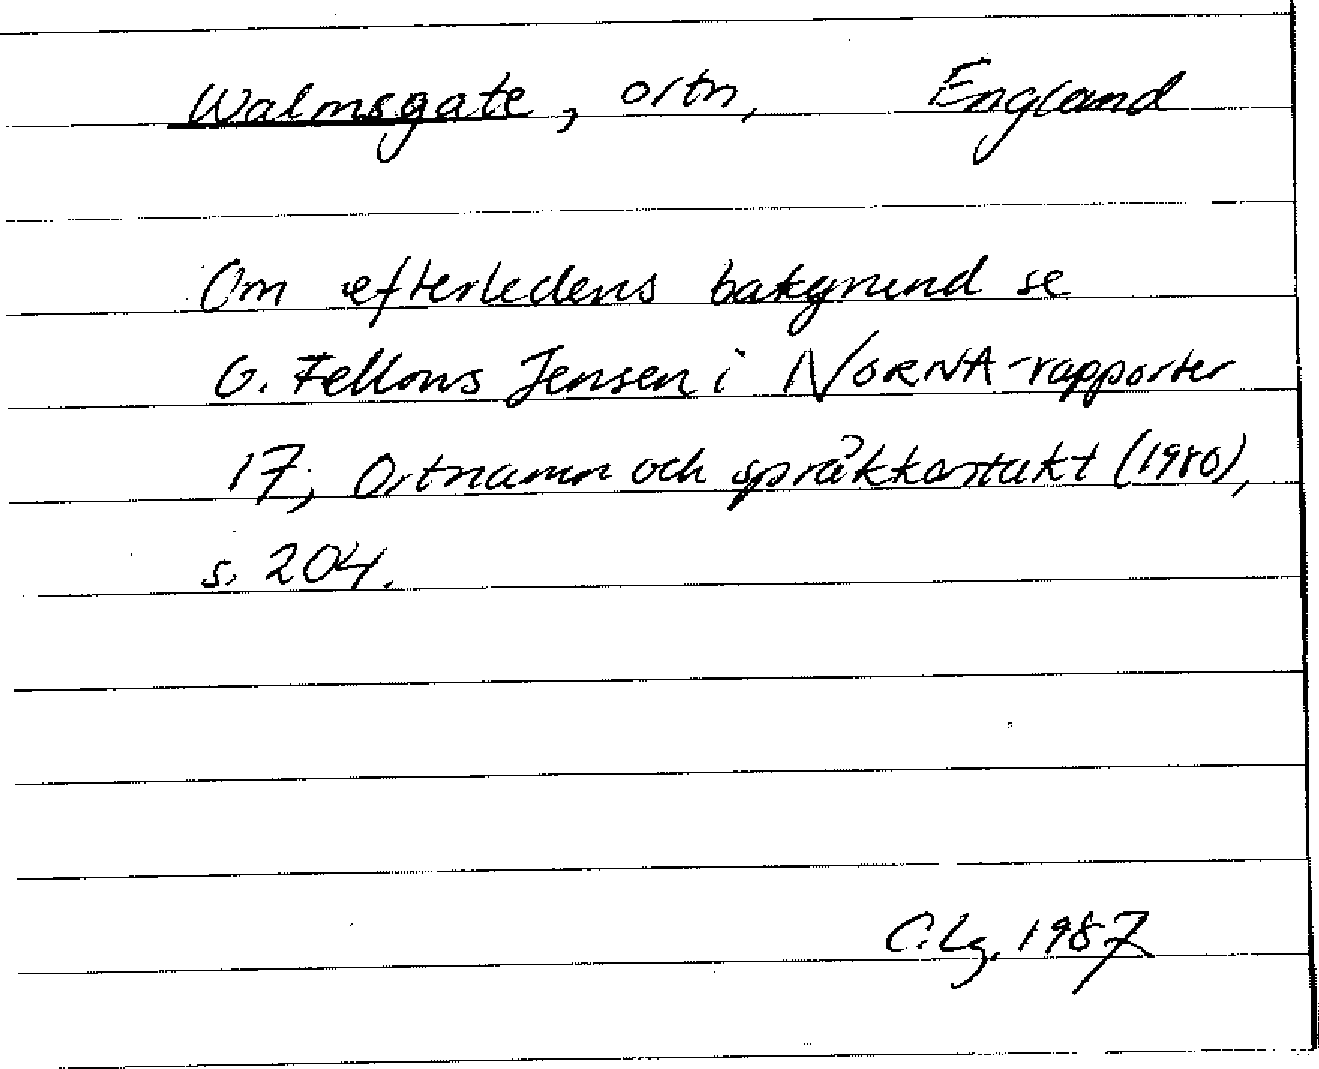 Walmsgate, ortn, England
Om efterledens bakgrund se
G. Fellows Jensen i NORNA-rapporter
17, Ortnamn och språkkontakt (1980),
s. 204.
C. Lg, 1987